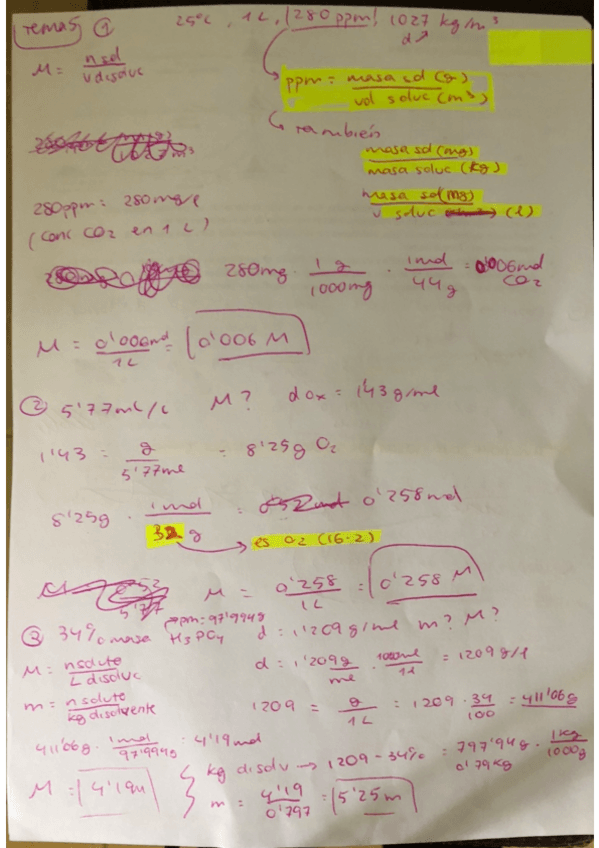 Temas ① 25ºC, 1L, 280ppm, 1027 kg/m³
d
M = n sol / V disoluc
ppm = masa sol (g) / vol soluc (m³)
También
masa sol (mg) / masa soluc (kg)
masa sol (mg) / v soluc (l)
280ppm = 280mg/l
(conc CO2 en 1L)
280mg · 1 g / 1000mg · 1mol / 44g = 0'006mol CO2
M = 0'006mol / 1L = 0'006 M
② 5'77mL/L M? d ox = 1'43 g/ml
1'43 = g / 5'77ml = 8'25g O2
8'25g · 1mol / 32 g = 0'258mol
es O2 (16·2)
M = 0'258 / 1L = 0'258 M
③ 34% masa H3PO4 d = 1'209 g/ml m? M?
pm = 97'994g
M = n solute / L disoluc
d = 1'209g / ml · 1000ml / 1L = 1209 g/l
m = n solute / kg disolvente
1209 = g / 1L = 1209 · 34 / 100 = 411'06g
411'06g · 1mol / 97'994g = 4'19mol
kg disolv → 1209 - 34% = 797'94g · 1kg / 1000g
0'79kg
M = 4'19M
m = 4'19 / 0'797 = 5'25m